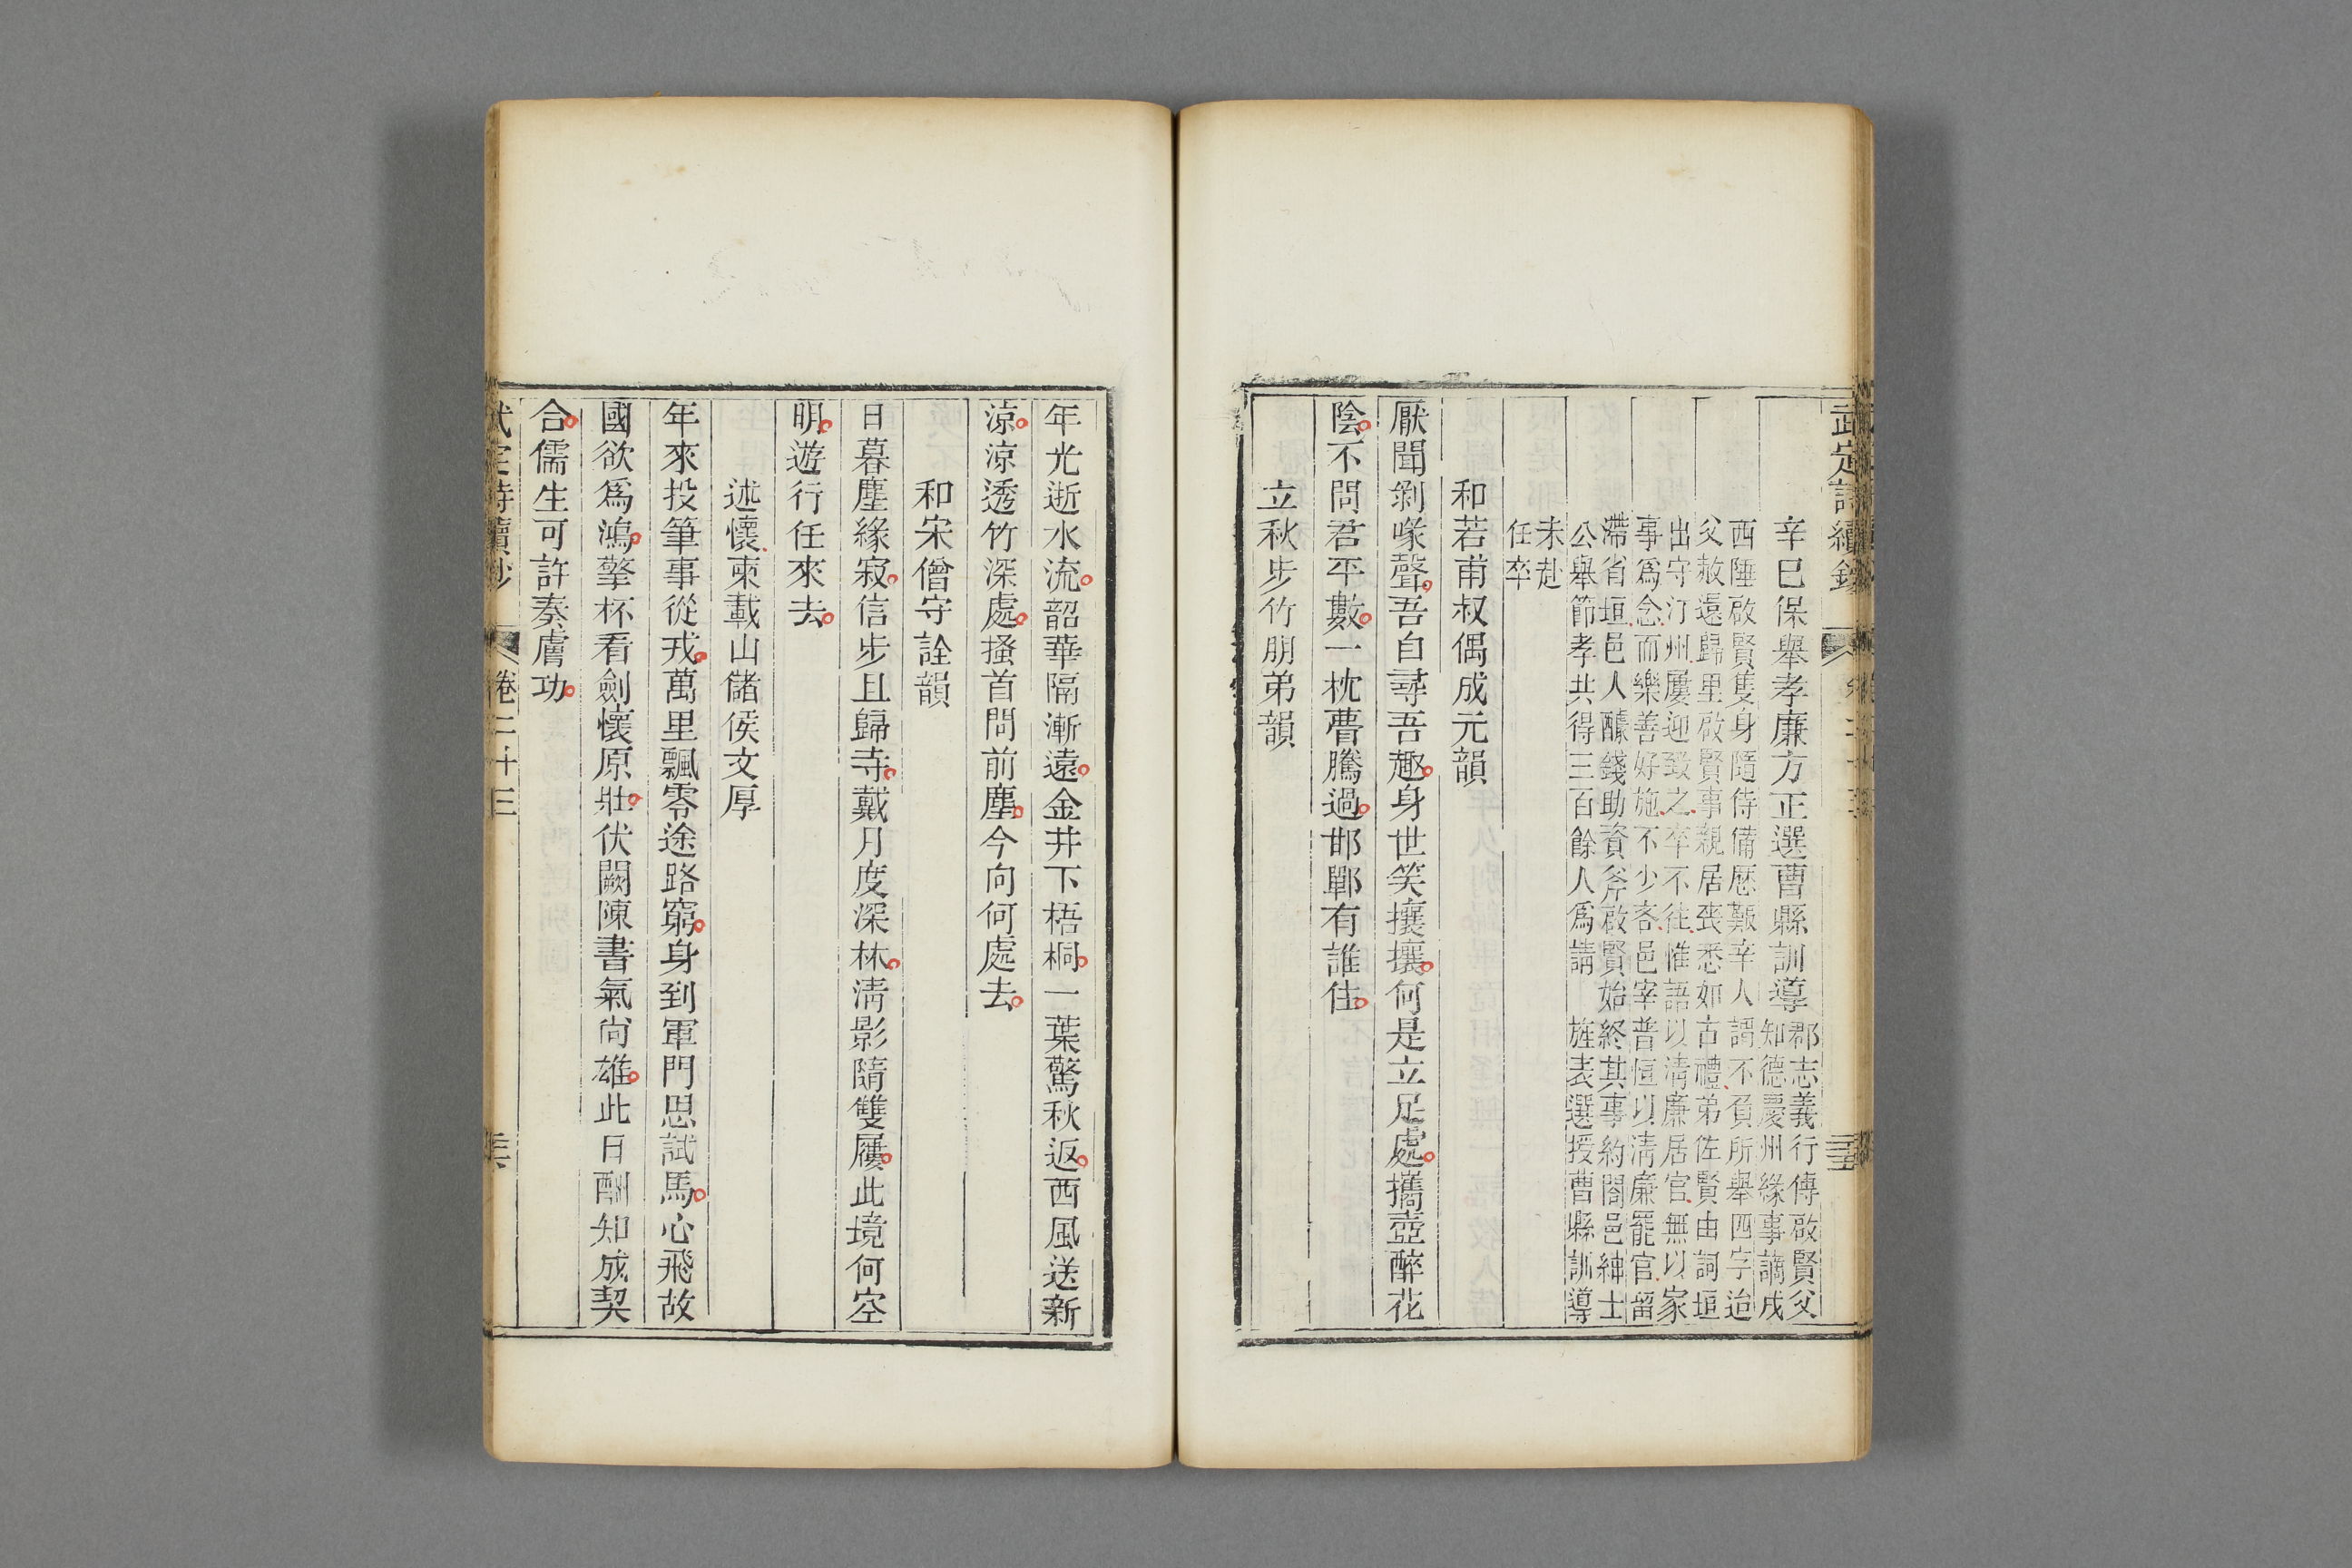 武定詩續鈔
辛巳保舉孝廉方正選曹縣訓導
郡志義行傳啟賢父
知德慶州緣事謫戍
西陲啟賢隻身隨侍備歷艱辛人謂不負所舉四字迨
父赦還歸里啟賢事親居喪悉如古禮弟佐賢由詞垣
出守汀州屢迎致之卒不往惟語以清廉居官無以家
事爲念而樂善好施不少吝邑宰普恒以清廉罷官留
滯省垣邑人醵錢助資斧啟賢始終其事約閤邑紳士
公舉節孝共得三百餘人爲請 旌表選授曹縣訓導
未赴
任卒
和若甫叔偶成元韻
厭聞剝啄聲吾自尋吾趣身世笑攘攘何是立足處攜壺醉花
陰不問君平數一枕瞢騰過邯鄲有誰住
立秋步竹朋弟韻
年光逝水流韶華隔漸遠金井下梧桐一葉驚秋返西風送新
涼涼透竹深處搔首問前塵今向何處去
和宋僧守詮韻
日暮塵緣寂信步且歸寺戴月度深林清影隨雙屨此境何空
明遊行任來去
述懷柬載山儲侯文厚
年來投筆事從戎萬里飄零途路窮身到軍門思試馬心飛故
國欲爲鴻擎杯看劍懷原壯伏闕陳書氣尚雄此日酬知成契
合儒生可許奏膚功
武定詩續鈔
卷二十三